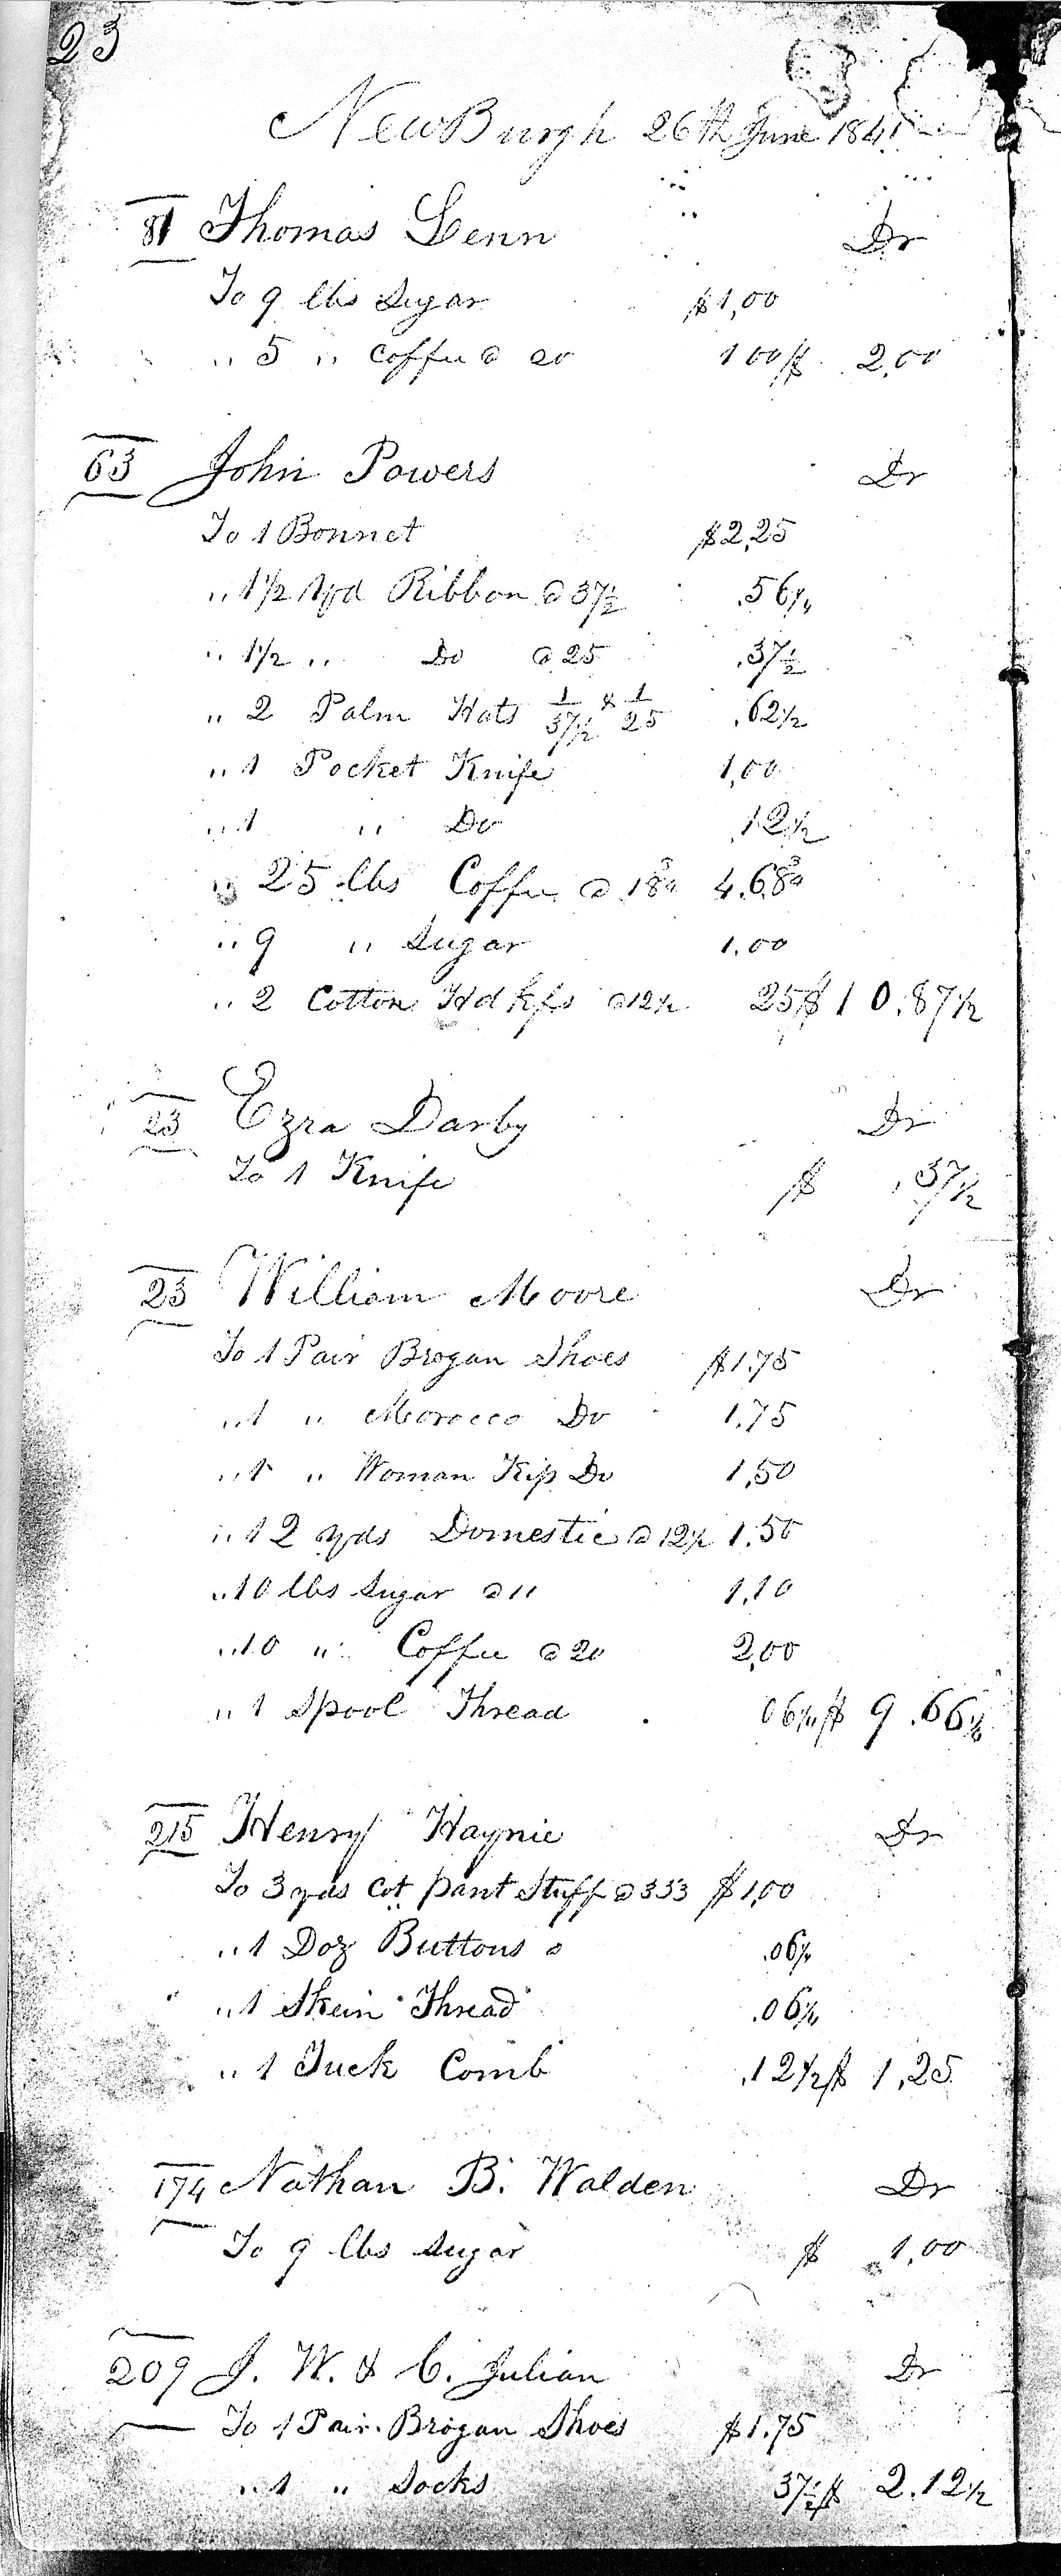 23
NewBurgh 26th June 1841
81 Thomas Lenn Dr
To 9 lbs Sugar $1,00
,, 5 ,, Coffee @ 20 1 00/$ 2,00
63 John Powers Dr
To 1 Bonnet $2,25
,, 1 1/2 yd Ribbon @ 37 1/2 .56 1/4
,, 1 1/2 ,, Do @ 25 .37 1/2
,, 2 Palm Hats 1/37 1/2 & 1/25 .62 1/2
,, 1 Pocket Knife 1,00
,, 1 ,, Do .12 1/2
,, 25 lbs Coffee @ 18 3/4 4.68 3/4
,, 9 ,, Sugar 1.00
,, 2 Cotton Hdkfs @ 12 1/2 25/$ 10.87 1/2
23 Ezra Darby Dr
To 1 Knife $ .37 1/2
23 William Moore Dr
To 1 Pair Brogan Shoes $1.75
,, 1 ,, Morocco Do 1.75
,, 1 ,, Woman Kip Do 1,50
,, 12 yds Domestic @ 12 1/2 1.50
,, 10 lbs Sugar @ 11 1.10
,, 10 ,, Coffee @ 20 2,00
,, 1 Spool Thread 06 1/4/$ 9.66 1/4
215 Henry Haynie Dr
To 3 yds Cot pant Stuff @ 333 $1,00
,, 1 Doz Buttons @ .06 1/4
,, 1 Skein Thread .06 1/4
,, 1 Tuck Comb .12 1/2/$ 1,25
174 Nathan B. Walden Dr
To 9 lbs Sugar $ 1,00
209 J. W. & C. Julian Dr
To 1 Pair Brogan Shoes $1.75
,, 1 ,, Socks 37 1/2/$ 2.12 1/2